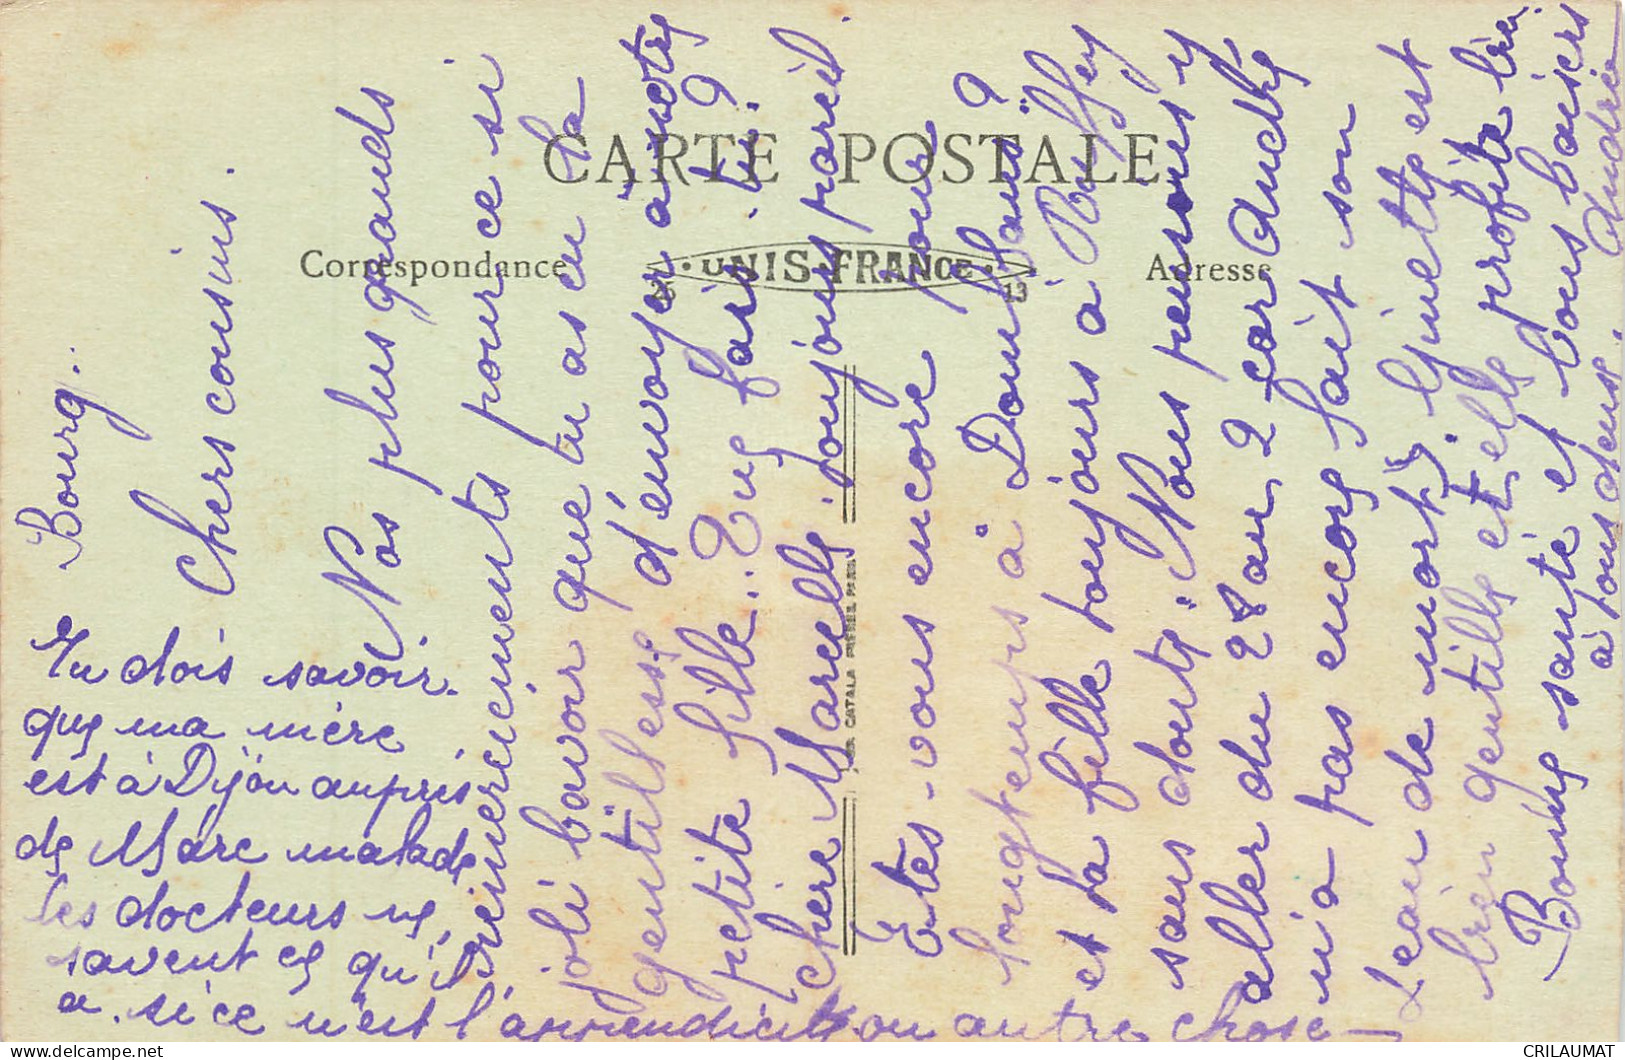 CARTE POSTALE
Correspondance
UNIS-FRANCE
13
Adresse
CATALA FRERES
Bourg.
Chers cousins.
Nos plus grands
remerciements pour ce si
joli bavoir que tu as eu la
gentillesse d'envoyer à notre
petite fille. Que fais-tu?
chère Marcelle. toujours pareil.
Etes-vous encore pour
longtemps à Domfaing?
et la fille toujours à Buffey
sans doute. Nous pensons y
aller du 28 au 2 car André
n'a pas encore fait son
de mort). Ginette est
bien gentille et elle profite bien.
Bonne santé et bons baisers
à tous deux. Andrée
Tu dois savoir
que ma mère
est à Dijon auprès
de Marc malade
les docteurs ne
savent ce qu'il
a. si ce n'est l'appendicite ou autre chose
CRILAUMAT